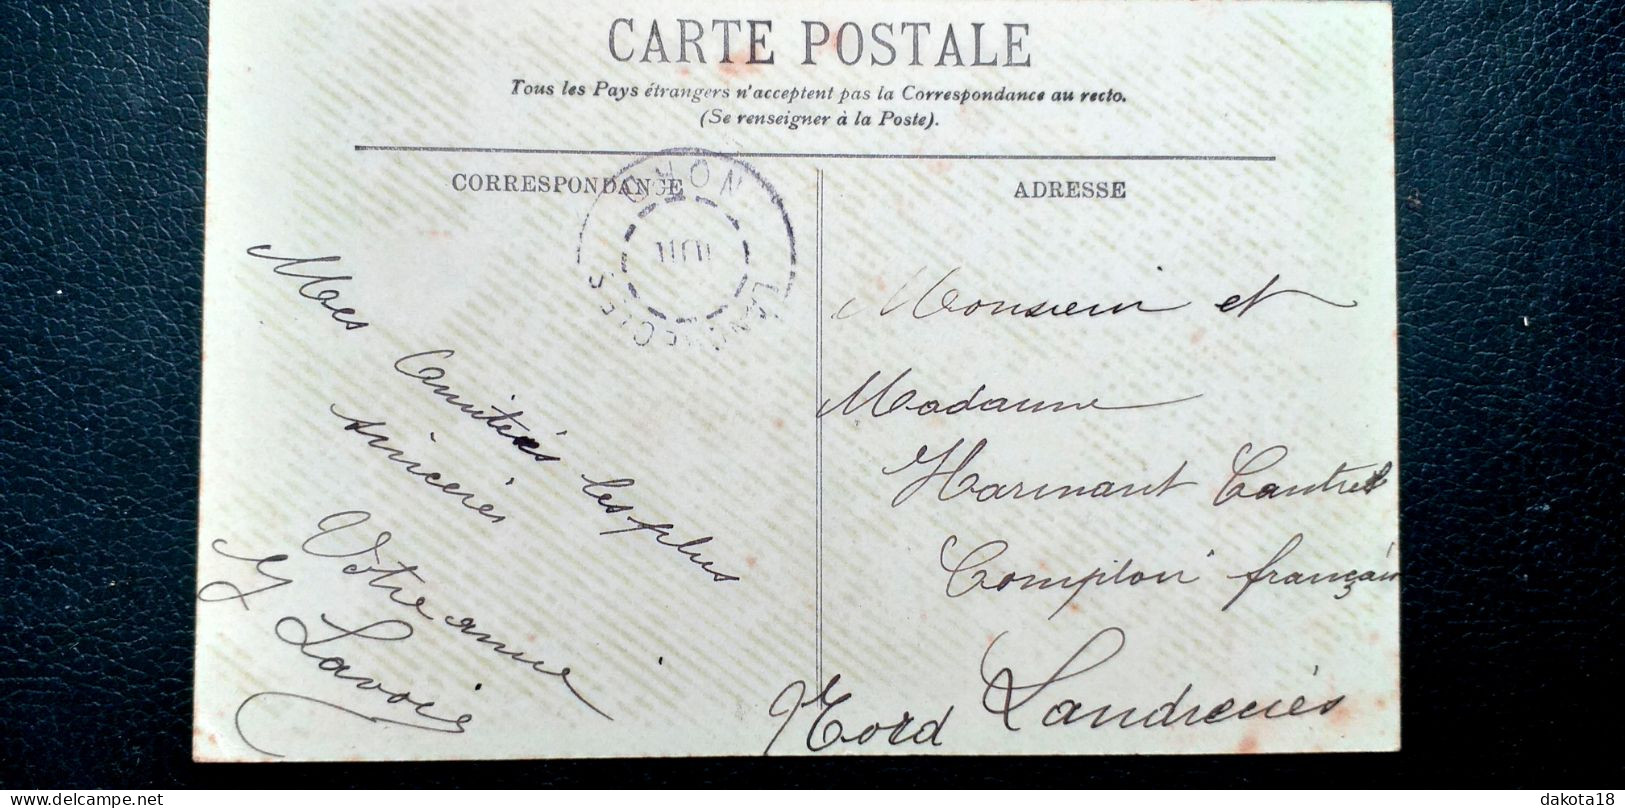 CARTE POSTALE
Tous les Pays étrangers n'acceptent pas la Correspondance au recto.
(Se renseigner à la Poste).
CORRESPONDANCE
ADRESSE
Mes
Amitiés les plus
sincères
Votre amie
Y Lavoie
Monsieur et
Madame
Harmant Cautret
Comptoir français
Landrecies
Nord
delcampe.net
dakota18